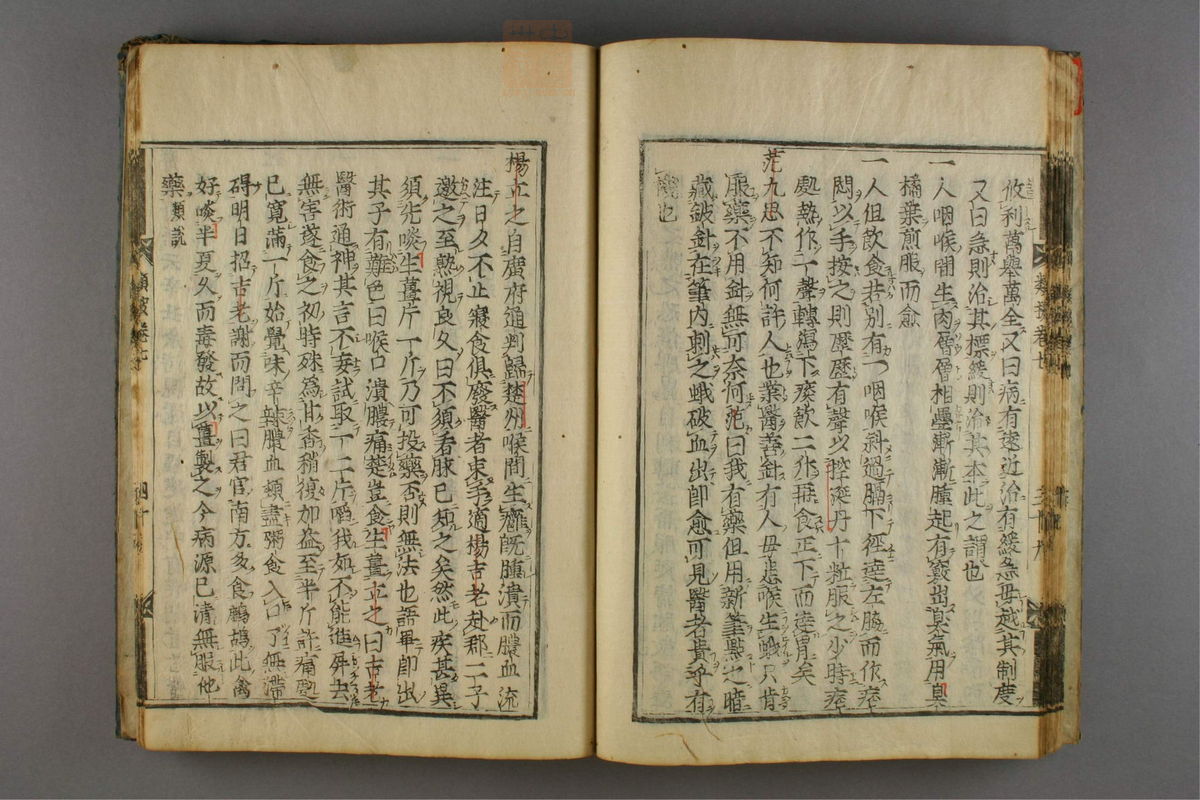 攸利萬擧萬全又曰病有遠近治有緩急毋越其制度
又曰急則治其標緩則治其本此之謂也
一人咽喉間生肉層層相疊漸漸腫起有竅出臭氣用臭
橘葉煎服而愈
一人但飲食若別有一咽喉斜過膈下徑達左脇而作痞
悶以手按之則歷歷有聲以控涎丹十粒服之少時痞
處熱作一聲轉瀉下痰飲二升再食正下而達胃矣
范九思不知何許人也業醫善針有人母患喉生蛾只肯
服藥不用針無可奈何范曰我有藥但用新筆點之暗
藏鈹針在筆內刺之蛾破血出卽愈可見醫者貴乎有
機也
類編卷七
三十九
楊立之自廣府通判歸楚州喉間生癰旣腫潰而膿血流
注日夕不止寢食俱廢醫者束手適楊吉老赴郡二子
邀之至熟視良久曰不須看脉已知之矣然此疾甚異
須先啖生薑片一斤乃可投藥否則無法也語畢卽出
其子有難色曰喉口潰膿痛楚豈食生薑立之曰吉老
醫術通神其言不妄試取一二片啗我如不能進屏去
無害遂食之初時殊爲甘香稍復加益至半斤許痛處
已寬滿一斤始覺味辛辣膿血頓盡粥食入口了無滯
碍明日招吉老謝而問之曰君官南方多食鷓鴣此禽
好啖半夏久而毒發故以薑製之今病源已清無服他
藥類說
卷七
四十